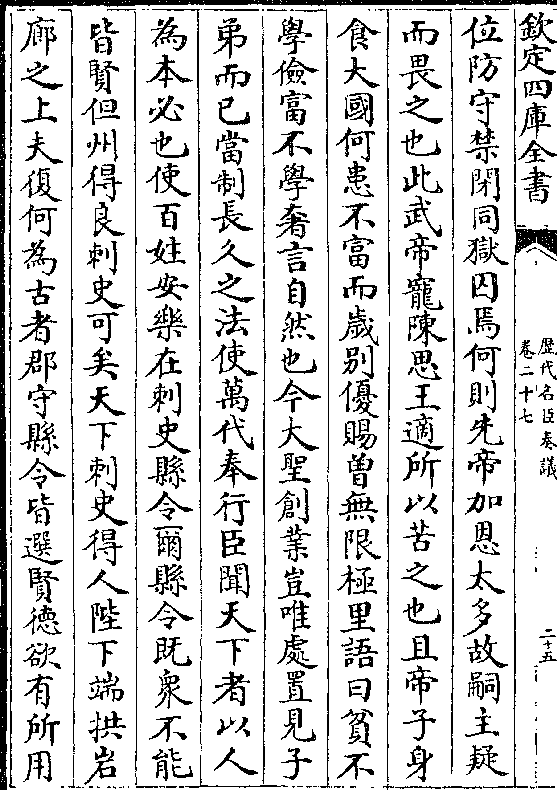 欽定四庫全書
歴代名臣奏議
卷二十七
二十五
位防守禁閉同獄囚焉何則先帝加恩太多故嗣主疑
而畏之也此武帝寵陳思王適所以苦之也且帝子身
食大國何患不富而歳别優賜曽無限極里語曰貧不
學儉富不學奢言自然也今大聖創業豈唯處置見子
弟而已當制長久之法使萬代奉行臣聞天下者以人
為本必也使百姓安樂在刺史縣令爾縣令既衆不能
皆賢但州得良刺史可矣天下刺史得人陛下端拱岩
廊之上夫復何為古者郡守縣令皆選賢德欲有所用